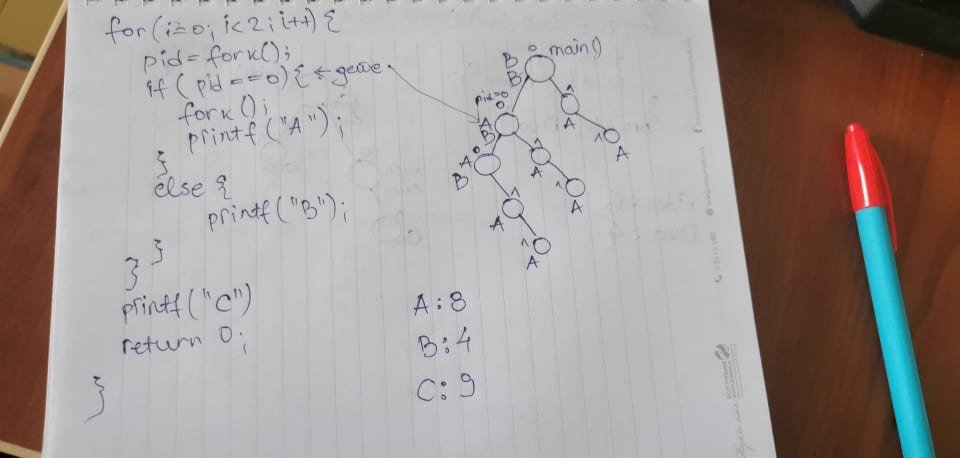 for (i=0; i<2; i++) {
pid = fork();
if (pid == 0) { ← дете
fork();
printf ("A");
}
else {
printf ("B");
}
}
printf ("C")
return 0;
}
0 main()
B
B
pid=0
0
A
B
A
B
1
A
1
A
1
A
1
A
1
A
1
A
A: 8
B: 4
C: 9